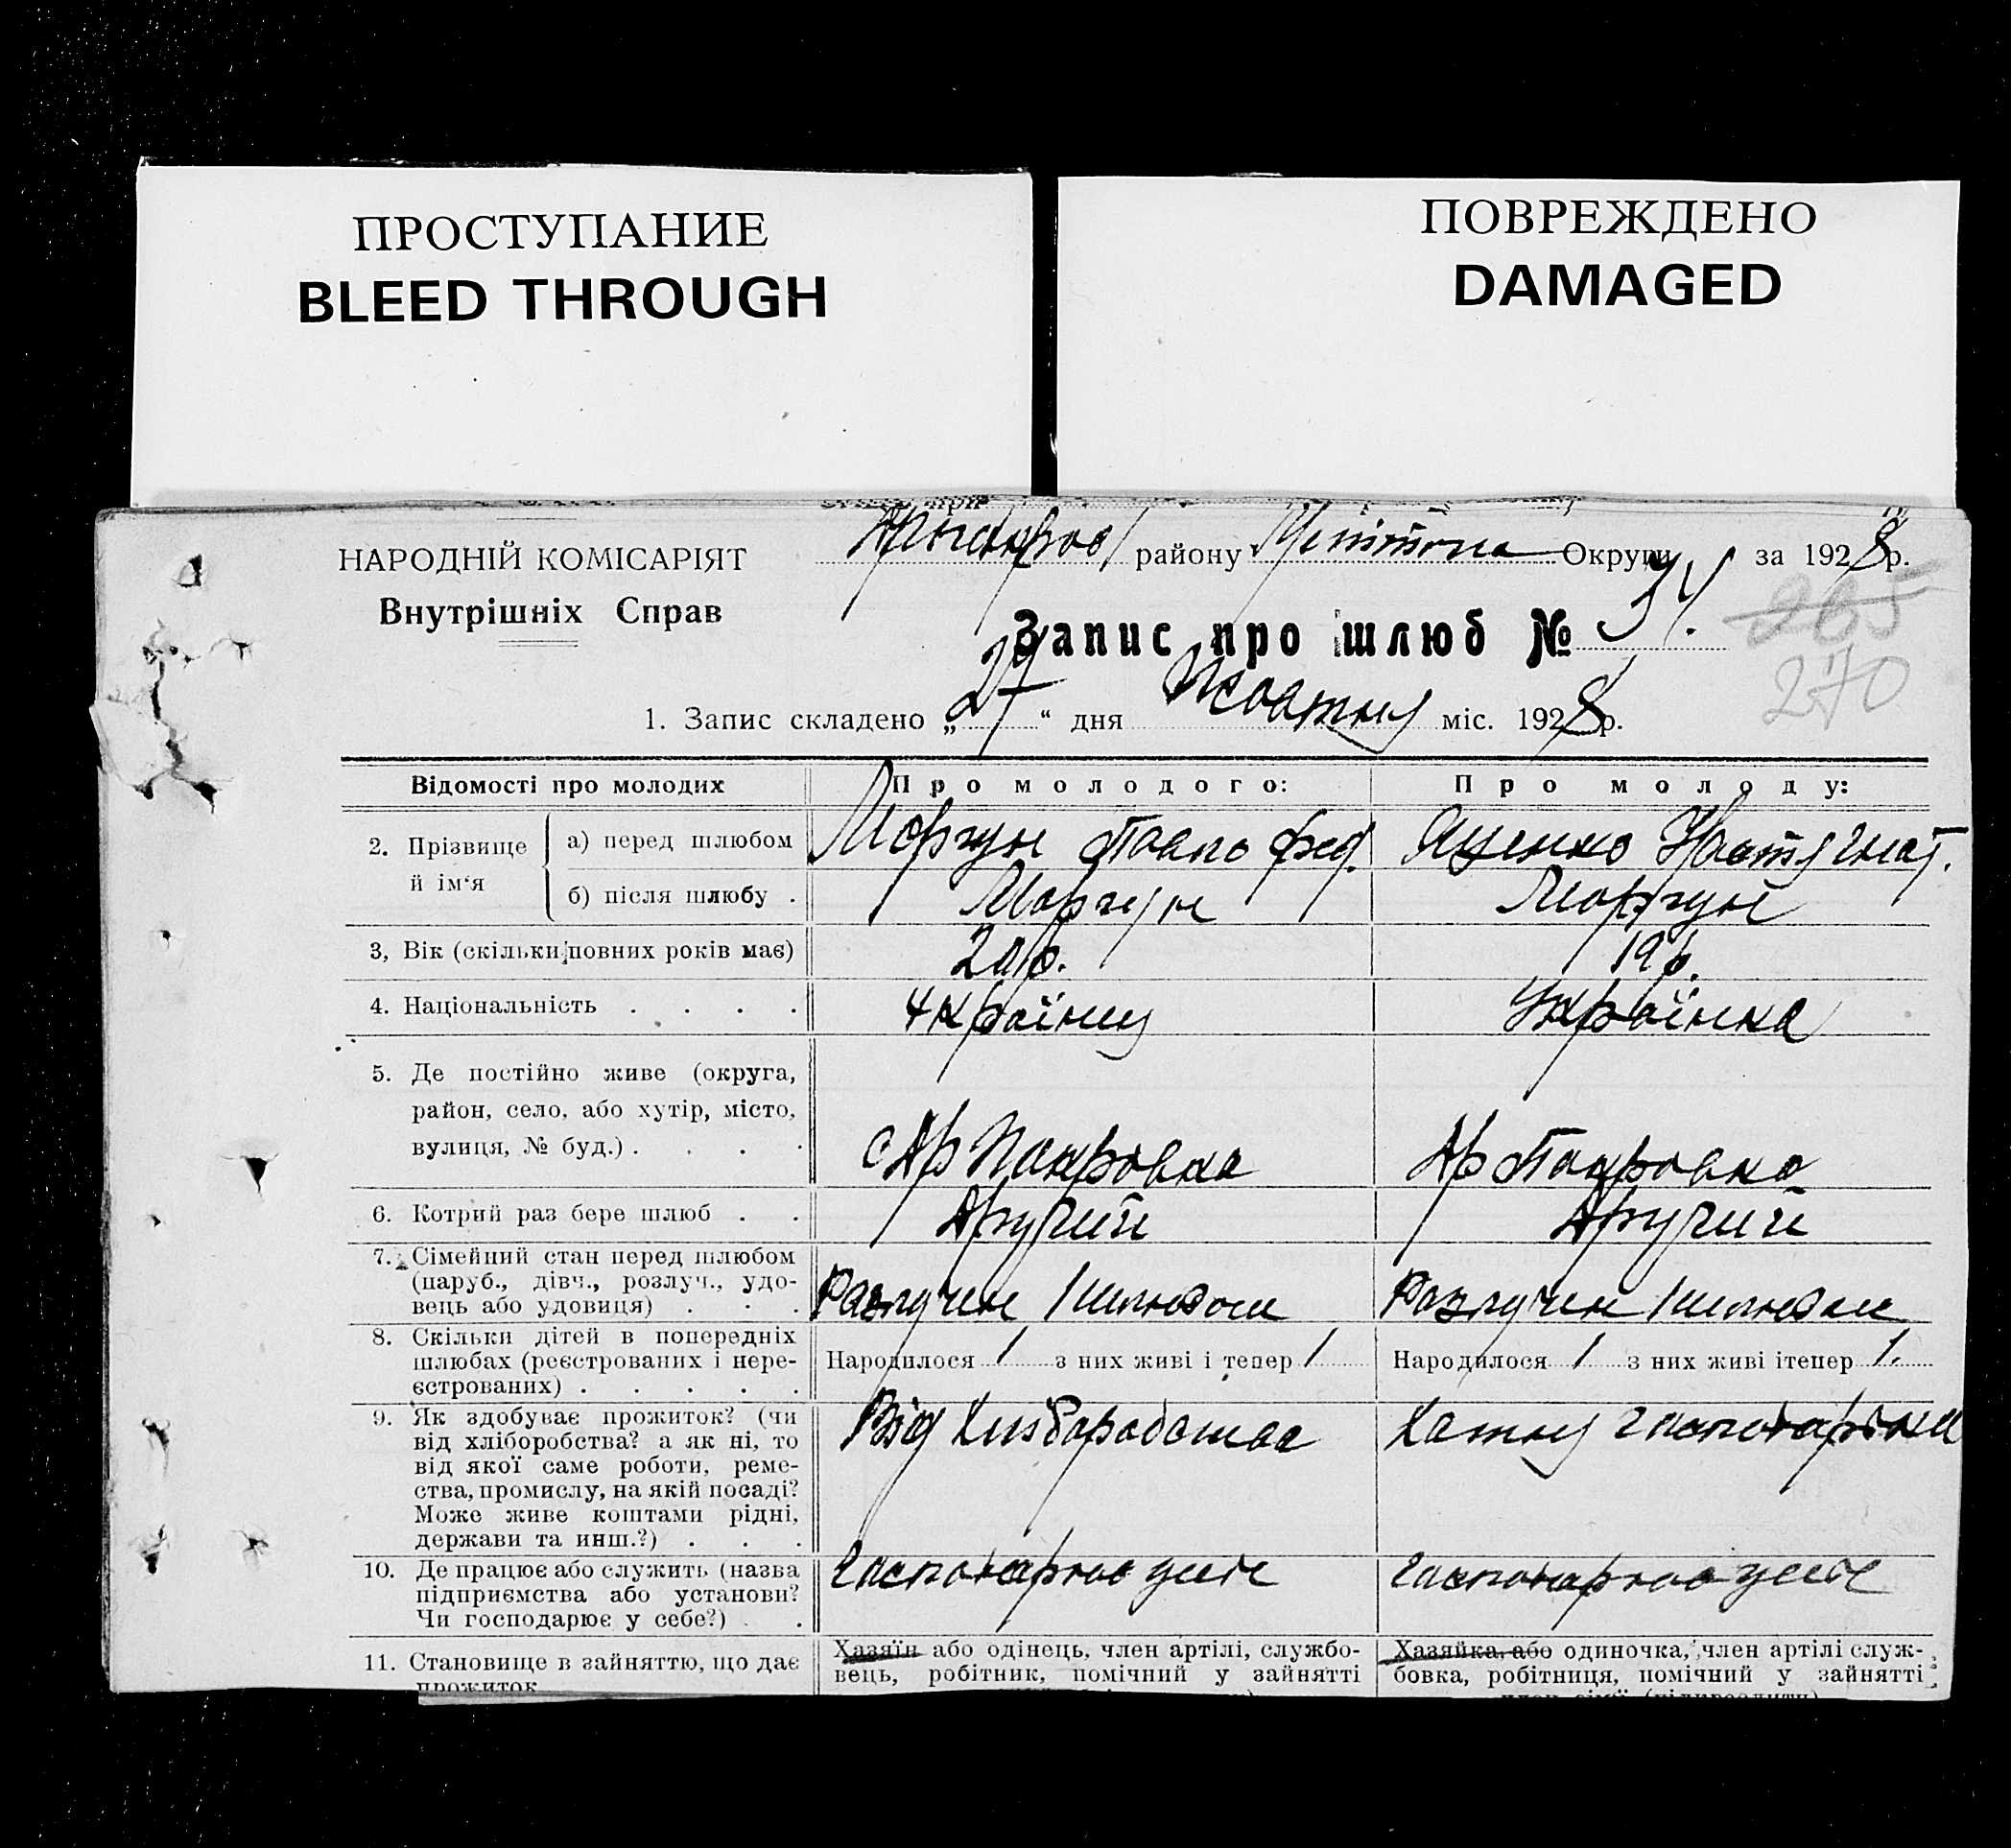 ПРОСТУПАНИЕ
BLEED THROUGH
ПОВРЕЖДЕНО
DAMAGED
НАРОДНІЙ КОМІСАРІЯТ
Внутрішніх Справ
району Округи за 1928 р.
Запис про шлюб №
265
270
1. Запис складено „27“ дня Жовтня міс. 1928 р.
Відомості про молодих
Про молодого:
Про молоду:
2. Прізвище й ім‘я
а) перед шлюбом
Моргун Павло Фед.
Яценко Настя Гнат.
б) після шлюбу .
Моргун
Моргун
3, Вік (скільки повних років має)
20 р.
19 р.
4. Національність . . . .
Українец
Українка
5. Де постійно живе (округа,
район, село, або хутір, місто,
вулиця, № буд.) . . . .
с Ар Покровка
Ар Покровка
6. Котрий раз бере шлюб . .
Другий
Другий
7. Сімейний стан перед шлюбом
(паруб., дівч., розлуч., удо-
вець або удовиця) . . .
Разлучен 1 шлюбом
Разлучен 1 шлюбом
8. Скільки дітей в попередніх
шлюбах (реєстрованих і нере-
єстрованих) . . . . .
Народилося 1 з них живі і тепер 1
Народилося 1 з них живі ітепер 1.
9. Як здобуває прожиток? (чи
від хліборобства? а як ні, то
від якої саме роботи, реме-
ства, промислу, на якій посаді?
Може живе коштами рідні,
держави та инш.?) . . .
Від
Хатня
10. Де працює або служить (назва
підприємства або установи?
Чи господарює у себе?) . .
11. Становище в зайняттю, що дає
прожиток
Хазяїн або одінець, член артілі, службо-
вець, робітник, помічний у зайнятті
Хазяйка, або одиночка, член артілі служ-
бовка, робітниця, помічний у зайнятті